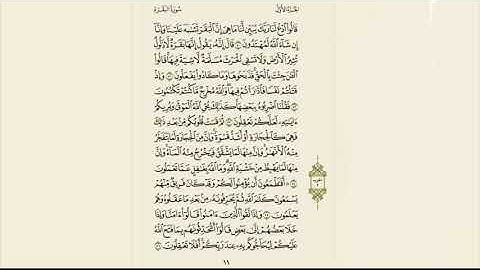 الجزء الأول
سورة البقرة
قَالُوا ادْعُ لَنَا رَبَّكَ يُبَيِّن لَّنَا مَا هِيَ إِنَّ الْبَقَرَ تَشَابَهَ عَلَيْنَا وَإِنَّا
إِن شَاءَ اللَّهُ لَمُهْتَدُونَ ٧٠ قَالَ إِنَّهُ يَقُولُ إِنَّهَا بَقَرَةٌ لَّا ذَلُولٌ
تُثِيرُ الْأَرْضَ وَلَا تَسْقِي الْحَرْثَ مُسَلَّمَةٌ لَّا شِيَةَ فِيهَا قَالُوا
الْآنَ جِئْتَ بِالْحَقِّ فَذَبَحُوهَا وَمَا كَادُوا يَفْعَلُونَ ٧١ وَإِذْ
قَتَلْتُمْ نَفْسًا فَادَّارَأْتُمْ فِيهَا وَاللَّهُ مُخْرِجٌ مَّا كُنتُمْ تَكْتُمُونَ
٧٢ فَقُلْنَا اضْرِبُوهُ بِبَعْضِهَا كَذَٰلِكَ يُحْيِي اللَّهُ الْمَوْتَىٰ وَيُرِيكُمْ
آيَاتِهِ لَعَلَّكُمْ تَعْقِلُونَ ٧٣ ثُمَّ قَسَتْ قُلُوبُكُم مِّن بَعْدِ ذَٰلِكَ
فَهِيَ كَالْحِجَارَةِ أَوْ أَشَدُّ قَسْوَةً وَإِنَّ مِنَ الْحِجَارَةِ لَمَا يَتَفَجَّرُ
مِنْهُ الْأَنْهَارُ وَإِنَّ مِنْهَا لَمَا يَشَّقَّقُ فَيَخْرُجُ مِنْهُ الْمَاءُ وَإِنَّ
مِنْهَا لَمَا يَهْبِطُ مِنْ خَشْيَةِ اللَّهِ وَمَا اللَّهُ بِغَافِلٍ عَمَّا تَعْمَلُونَ
٧٤ ۞ أَفَتَطْمَعُونَ أَن يُؤْمِنُوا لَكُمْ وَقَدْ كَانَ فَرِيقٌ مِّنْهُمْ
يَسْمَعُونَ كَلَامَ اللَّهِ ثُمَّ يُحَرِّفُونَهُ مِن بَعْدِ مَا عَقَلُوهُ وَهُمْ
يَعْلَمُونَ ٧٥ وَإِذَا لَقُوا الَّذِينَ آمَنُوا قَالُوا آمَنَّا وَإِذَا
خَلَا بَعْضُهُمْ إِلَىٰ بَعْضٍ قَالُوا أَتُحَدِّثُونَهُم بِمَا فَتَحَ اللَّهُ
عَلَيْكُمْ لِيُحَاجُّوكُم بِهِ عِندَ رَبِّكُمْ أَفَلَا تَعْقِلُونَ ٧٦
١١